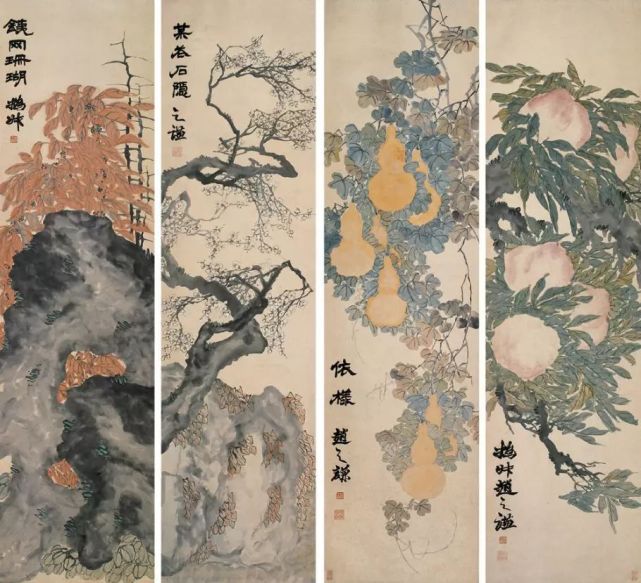 鐵网珊瑚 撝叔
某石隱 之謙
依樣
趙之謙
撝叔趙之謙